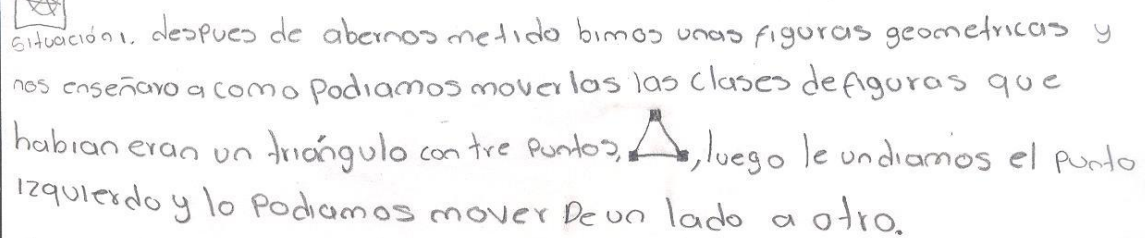 situación1. despues de abernos metido bimos unas figuras geometricas y
nos enseñaro a como Podiamos mover las las clases de figuras que
habian eran un triángulo con tre puntos, , luego le undiamos el punto
izquierdo y lo Podiamos mover De un lado a otro.